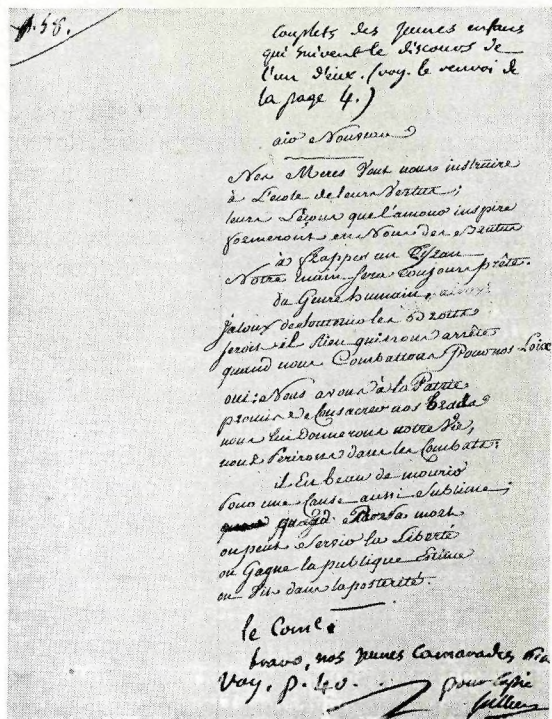 p. 38.
Couplets des jeunes enfans
qui suivent le discours de
l'un d'eux. (voy. le renvoi de
la page 4.)
air Nouveau
Nos Meres Vont nous instruire
à L'ecole de leurs Vertus ;
leurs Leçons que l'amour inspire
formeront en Nous des Brutus
à frapper un Tyran
Notre main sera Toujours prête.
du Genre humain,
jaloux de soutenir les Droits
seroit-il Rien qui nous arrête
quand nous Combattons Pour nos Loix
oui : Nous avons à la Patrie
promis de Consacrer nos Bras
nous lui donnerons notre Vie,
nous Perirons dans les Combats :
il Est beau de mourir
Pour une Cause aussi Sublime ;
quand Par sa mort
on peut Servir la Liberté
on Gagne la publique Estime
on Vit dans la posterité.
le Comte
bravo, nos jeunes Camarades
Voy. p. 40. pour copie